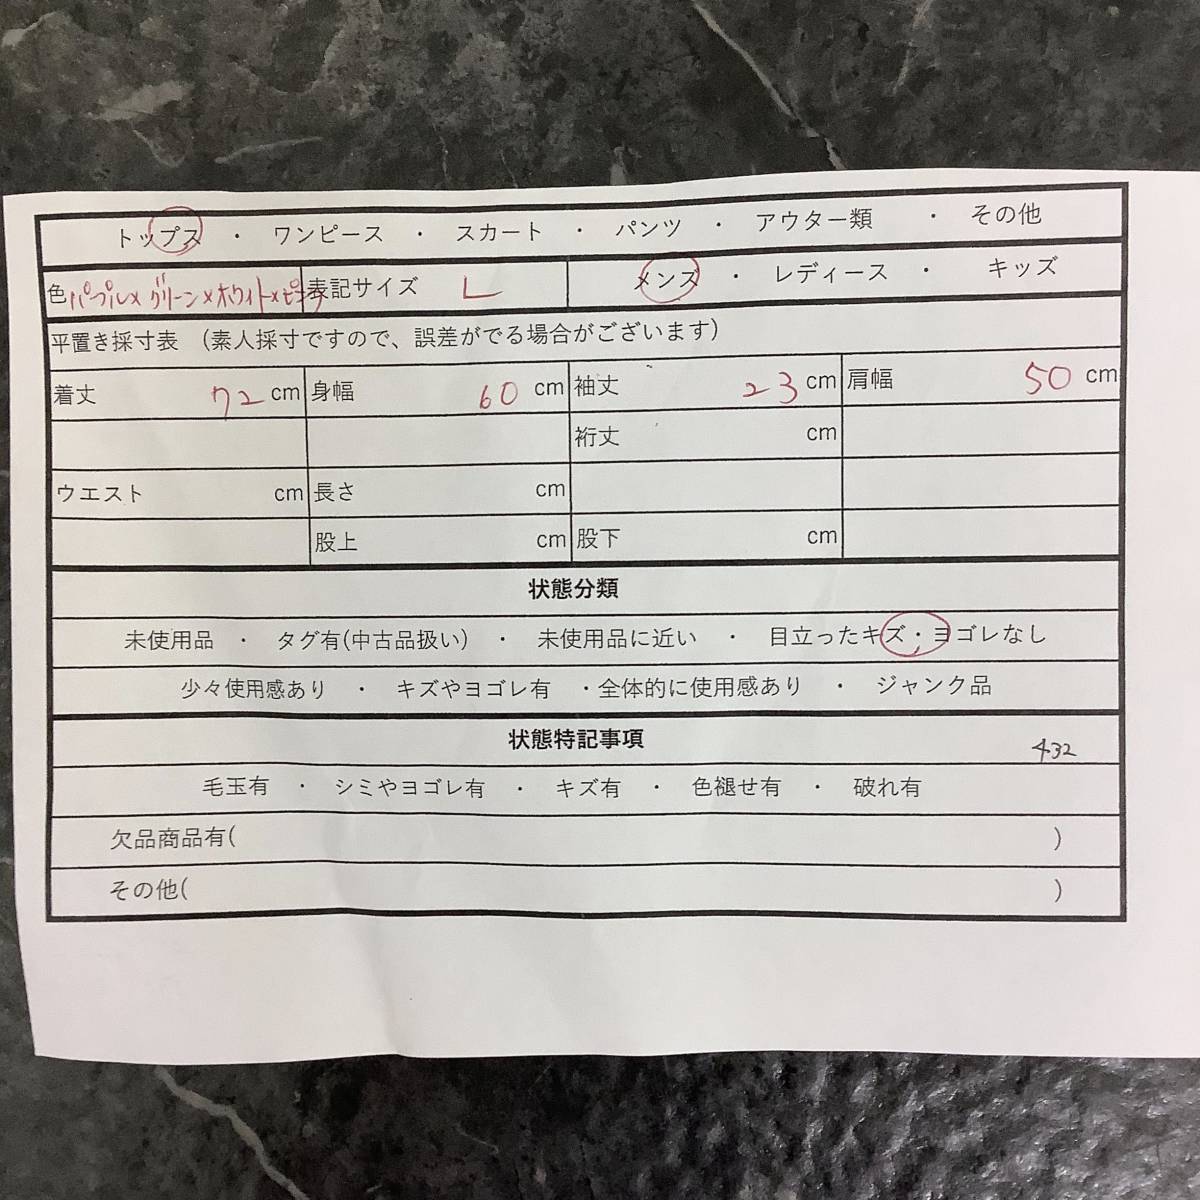 トップス ・ ワンピース ・ スカート ・ パンツ ・ アウター類 ・ その他
色 パープル×グリーン×ホワイト×ピンク 表記サイズ L メンズ ・ レディース ・ キッズ
平置き採寸表 (素人採寸ですので、誤差がでる場合がございます)
着丈 72 cm 身幅 60 cm 袖丈 23 cm 肩幅 50 cm
裄丈 cm
ウエスト cm 長さ cm
股上 cm 股下 cm
状態分類
未使用品 ・ タグ有(中古品扱い) ・ 未使用品に近い ・ 目立ったキズ・ヨゴレなし
少々使用感あり ・ キズやヨゴレ有 ・全体的に使用感あり ・ ジャンク品
状態特記事項 432
毛玉有 ・ シミやヨゴレ有 ・ キズ有 ・ 色褪せ有 ・ 破れ有
欠品商品有( )
その他( )